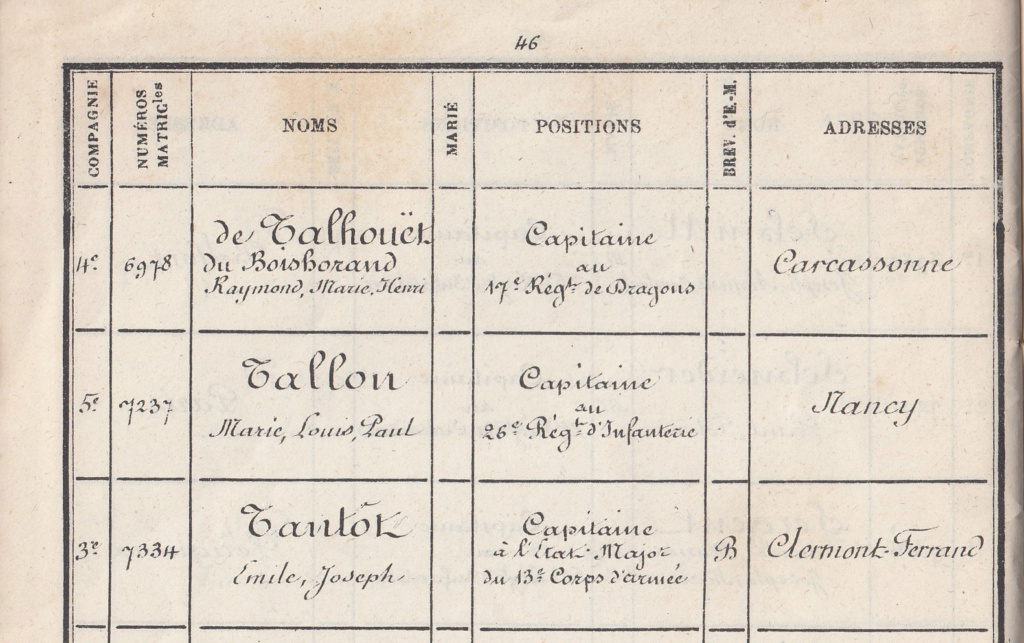 46
COMPAGNIE NUMÉROS MATRICles NOMS MARIÉ POSITIONS BREV. d'E.-M. ADRESSES
4e 6978 de Talhouët Capitaine Carcassonne
du Boishorand au
Raymond, Marie, Henri 17e Régt de Dragons
5e 7237 Tallon Capitaine Nancy
au
Marie, Louis, Paul 26e Régt d'Infanterie
3e 7334 Tantôt Capitaine B Clermont-Ferrand
à l'État-Major
Émile, Joseph du 13e Corps d'armée